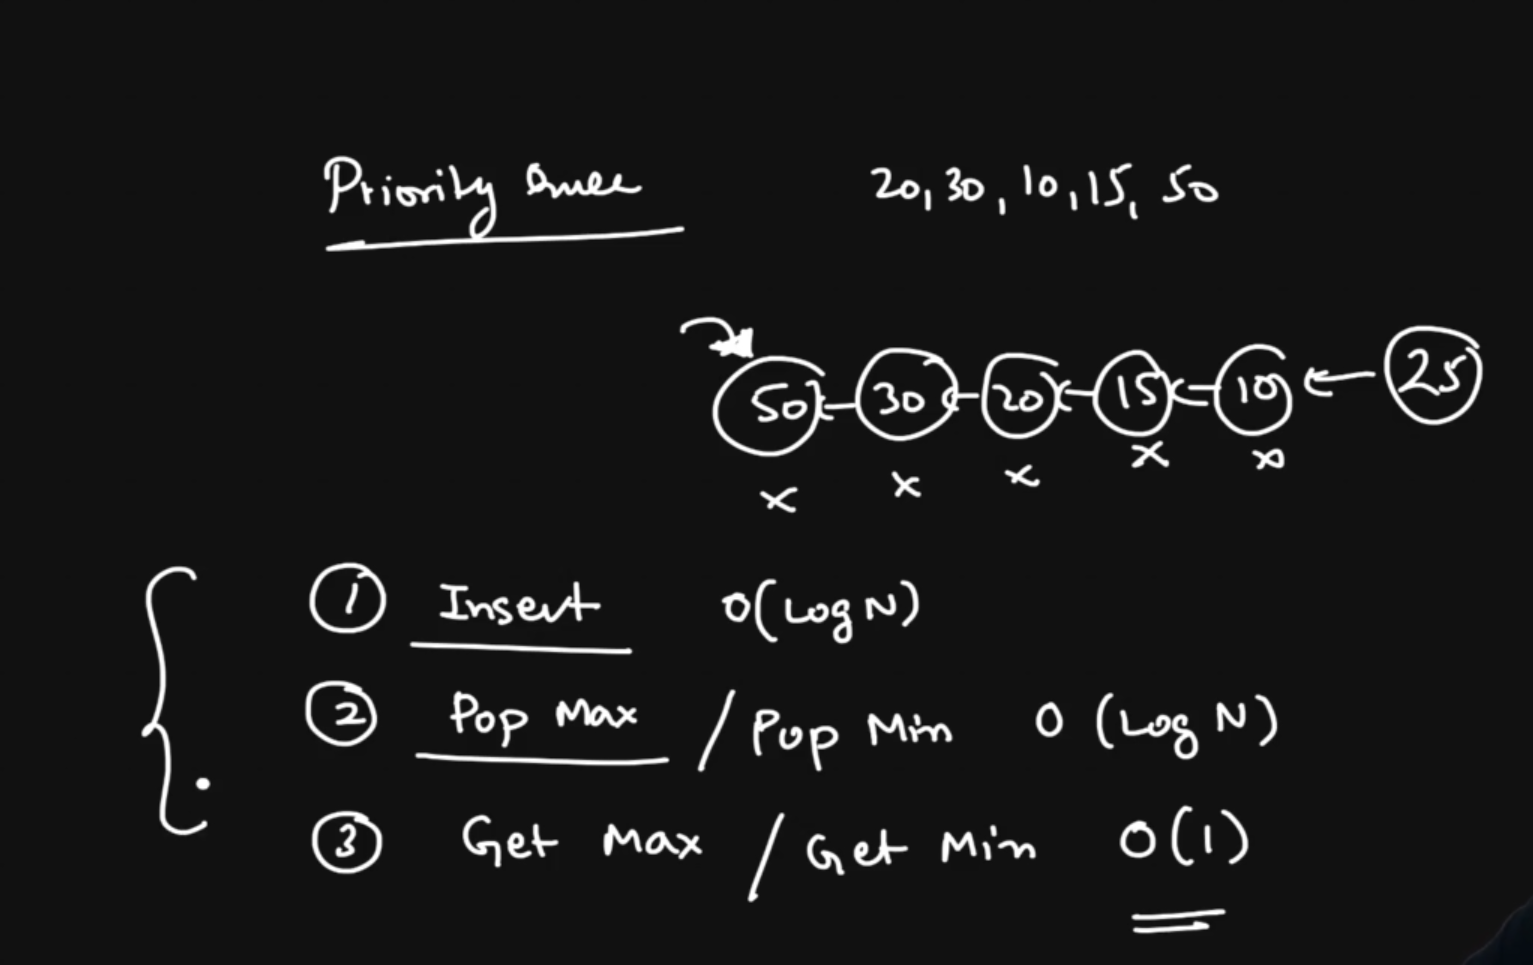 Priority Queue 20, 30, 10, 15, 50
50 30 20 15 10 25
x x x x x
1 Insert O(Log N)
2 Pop Max / Pop Min O (Log N)
3 Get Max / Get Min O(1)